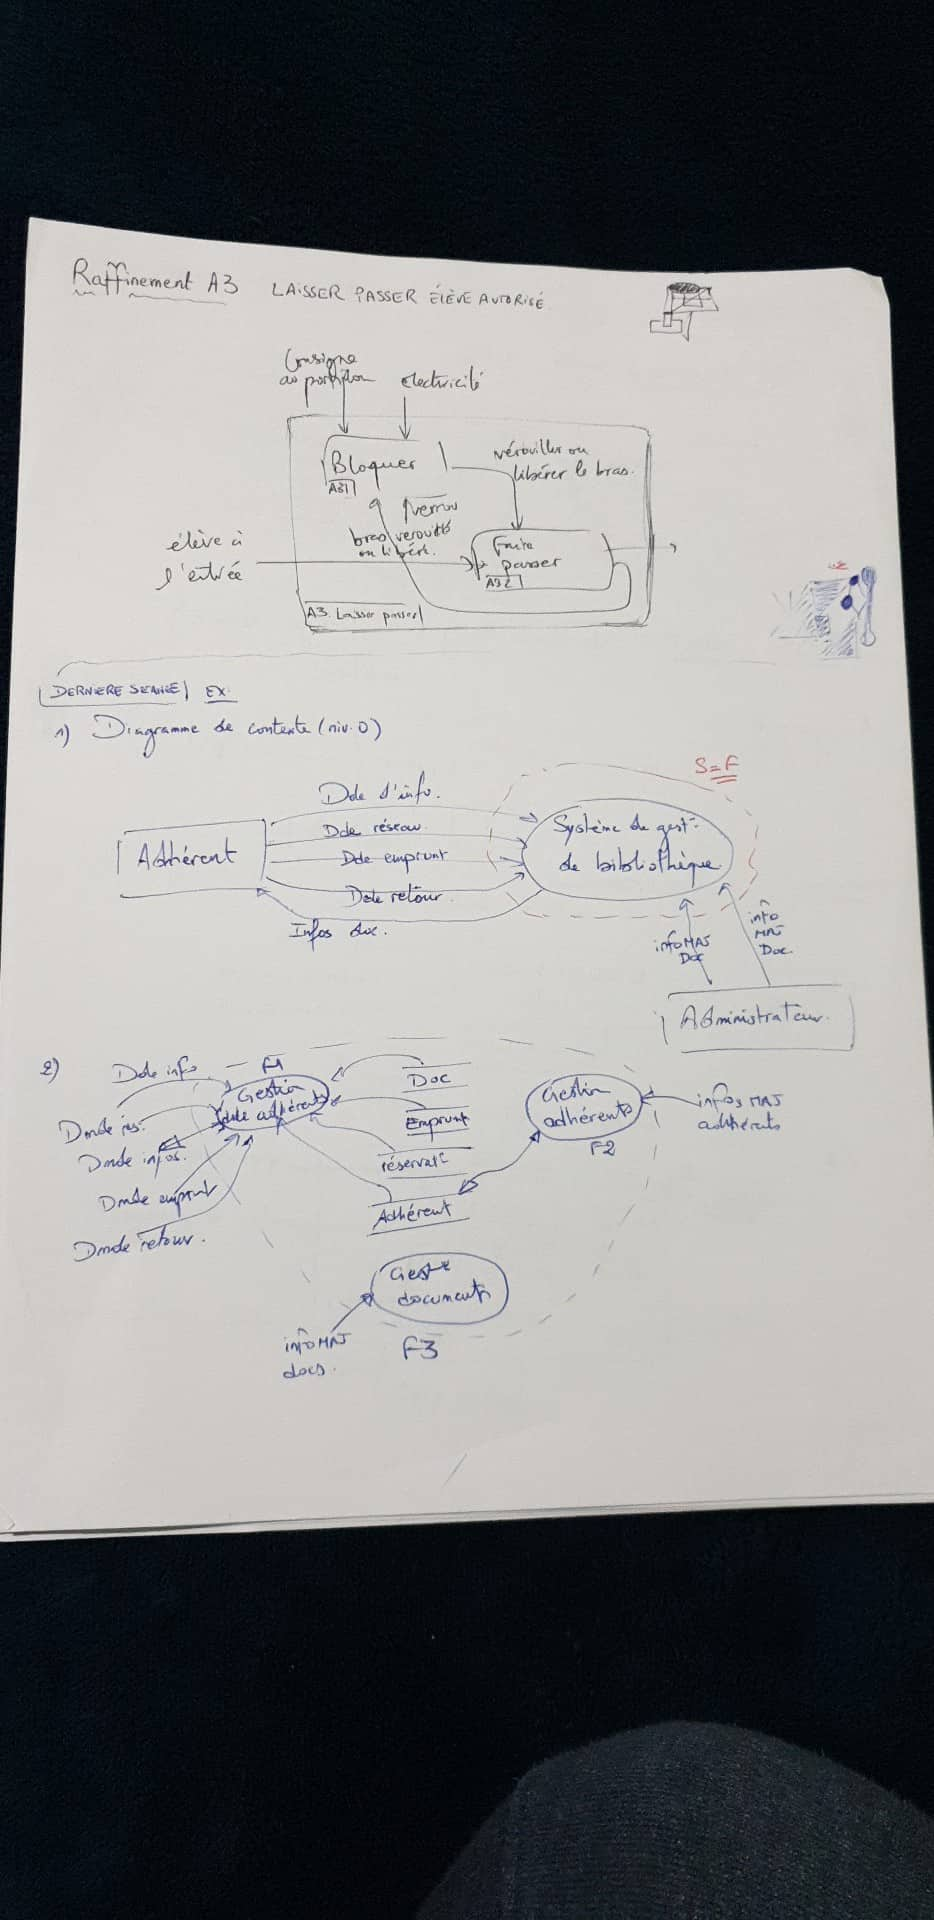 Raffinement A3 LAISSER PASSER ÉLÈVE AUTORISÉ
Consigne
au portillon
électricité
Bloquer
A31
vérouiller ou
libérer le bras.
verrou
bras verouillé
ou libéré.
élève à
l'entrée
Faire
passer
A32
A3. Laisser passer
DERNIERE SEANCE EX.
1) Diagramme de contexte (niv. 0)
S=F
Dde d'info.
Dde réserv.
Dde emprunt
Dde retour.
Infos doc.
Adhérent
Système de gest°
de bibliothèque
info MAJ
Doc
info
MAJ
Doc.
Administrateur.
2)
Dde info
Dmde rés.
Dmde infos.
Dmde emprunt
Dmde retour.
F1
Gestion
adhérents
Doc
Emprunt
réservat°
Adhérent
Gestion
adhérents
F2
infos MAJ
adhérents
Gest°
documents
F3
info MAJ
docs.